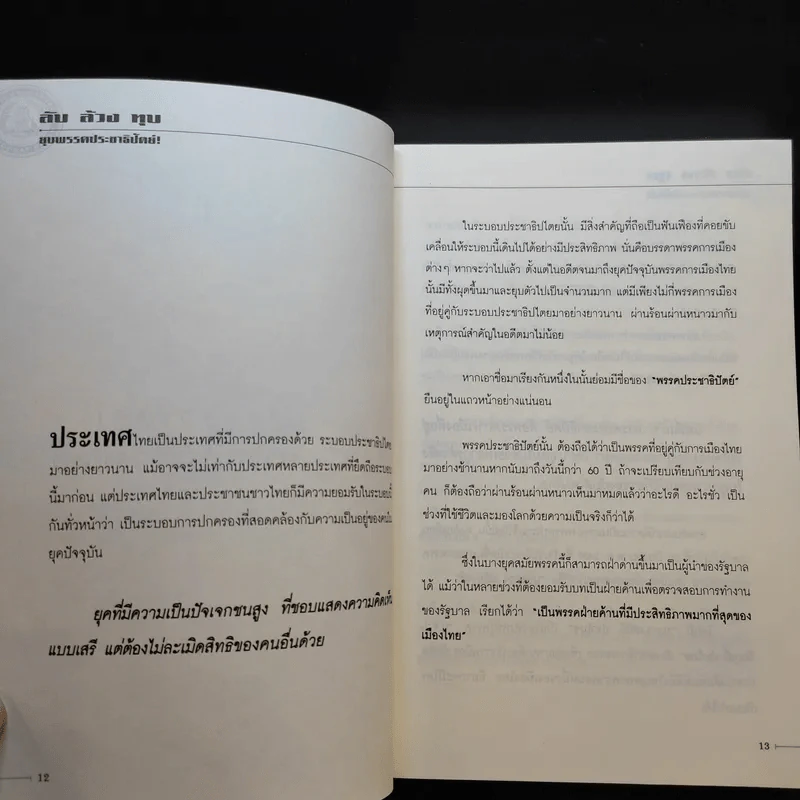 ลับ ล้วง ทุบ
ยุบพรรคประชาธิปัตย์!
ประเทศไทยเป็นประเทศที่มีการปกครองด้วย ระบอบประชาธิปไตย
มาอย่างยาวนาน แม้อาจจะไม่เท่ากับประเทศหลายประเทศที่ยึดถือระบอบ
นี้มาก่อน แต่ประเทศไทยและประชาชนชาวไทยก็มีความยอมรับในระบอบนี้
กันทั่วหน้าว่า เป็นระบอบการปกครองที่สอดคล้องกับความเป็นอยู่ของคนใน
ยุคปัจจุบัน
ยุคที่มีความเป็นปัจเจกชนสูง ที่ชอบแสดงความคิดเห็น
แบบเสรี แต่ต้องไม่ละเมิดสิทธิของคนอื่นด้วย
12
ในระบอบประชาธิปไตยนั้น มีสิ่งสำคัญที่ถือเป็นฟันเฟืองที่คอยขับ
เคลื่อนให้ระบอบนี้เดินไปได้อย่างมีประสิทธิภาพ นั่นคือบรรดาพรรคการเมือง
ต่างๆ หากจะว่าไปแล้ว ตั้งแต่ในอดีตจนมาถึงยุคปัจจุบันพรรคการเมืองไทย
นั้นมีทั้งผุดขึ้นมาและยุบตัวไปเป็นจำนวนมาก แต่มีเพียงไม่กี่พรรคการเมือง
ที่อยู่คู่กับระบอบประชาธิปไตยมาอย่างยาวนาน ผ่านร้อนผ่านหนาวมากับ
เหตุการณ์สำคัญในอดีตมาไม่น้อย
หากเอาชื่อมาเรียงกันหนึ่งในนั้นย่อมมีชื่อของ "พรรคประชาธิปัตย์"
ยืนอยู่ในแถวหน้าอย่างแน่นอน
พรรคประชาธิปัตย์นั้น ต้องถือได้ว่าเป็นพรรคที่อยู่คู่กับการเมืองไทย
มาอย่างช้านานหากนับมาถึงวันนี้กว่า 60 ปี ถ้าจะเปรียบเทียบกับช่วงอายุ
คน ก็ต้องถือว่าผ่านร้อนผ่านหนาวเห็นมาหมดแล้วว่าอะไรดี อะไรชั่ว เป็น
ช่วงที่ใช้ชีวิตและมองโลกด้วยความเป็นจริงก็ว่าได้
ซึ่งในบางยุคสมัยพรรคนี้ก็สามารถฝ่าด่านขึ้นมาเป็นผู้นำของรัฐบาล
ได้ แม้ว่าในหลายช่วงที่ต้องยอมรับบทเป็นฝ่ายค้านเพื่อตรวจสอบการทำงาน
ของรัฐบาล เรียกได้ว่า "เป็นพรรคฝ่ายค้านที่มีประสิทธิภาพมากที่สุดของ
เมืองไทย"
13